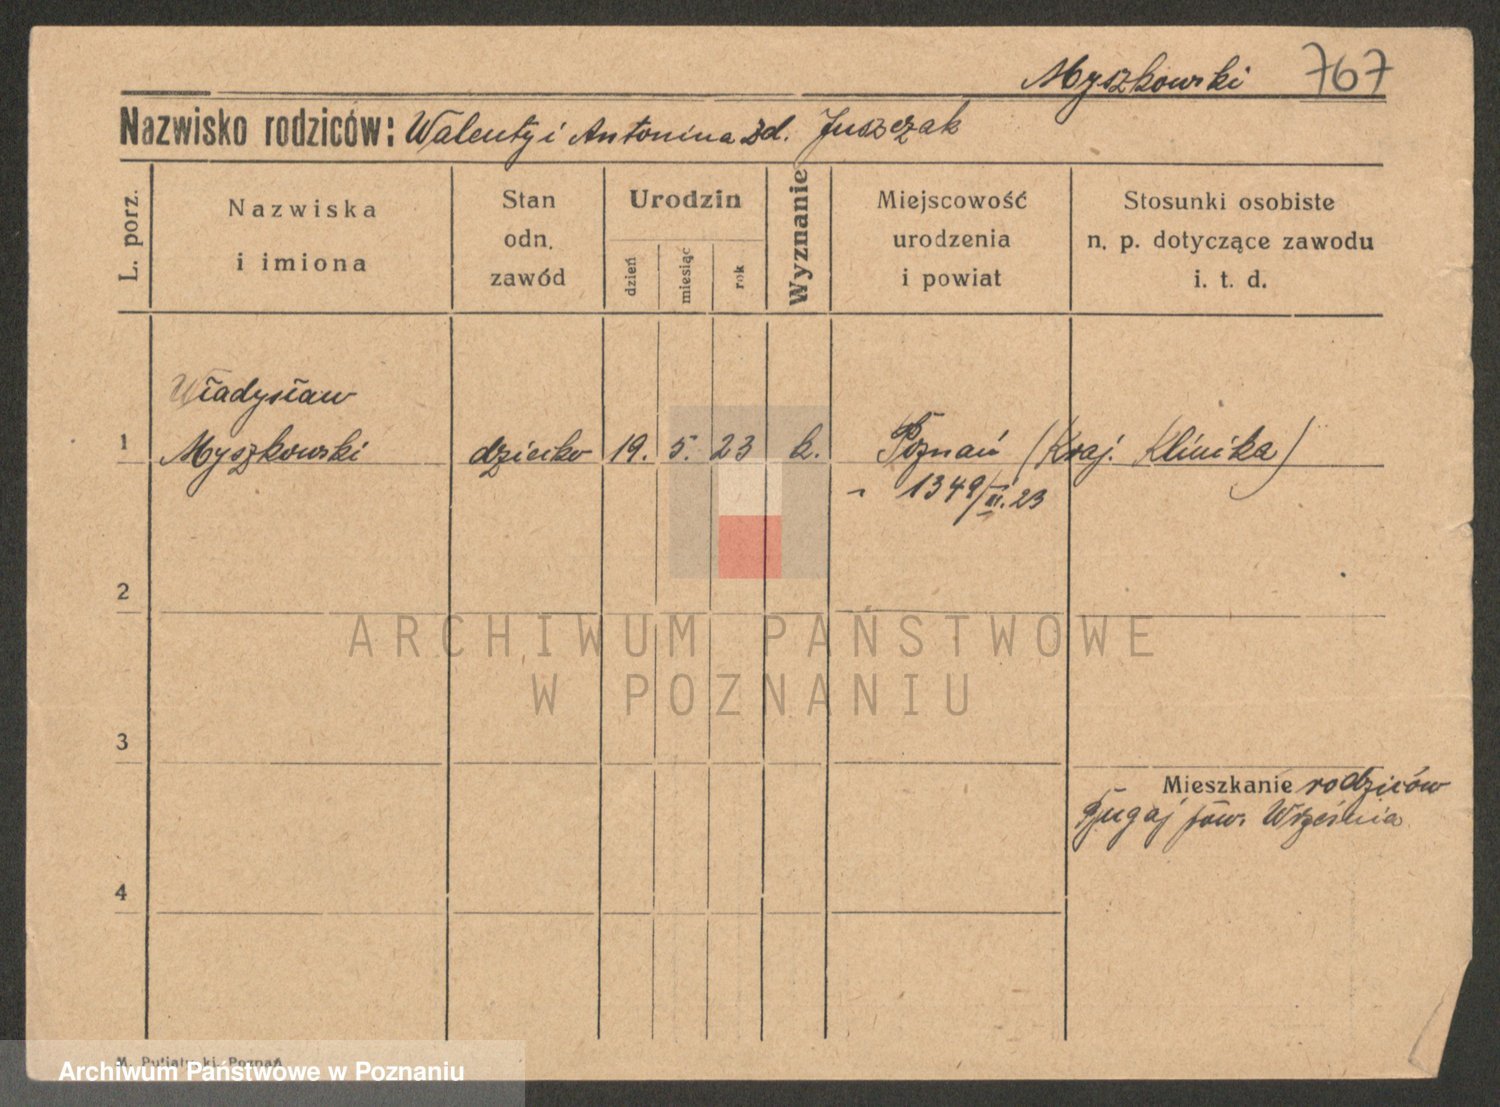 Myszkowski 767
Nazwisko rodziców: Walenty i Antonina zd. Juszczak
L. porz.
Nazwiska
i imiona
Stan
odn.
zawód
Urodzin
dzień
miesiąc
rok
Wyznanie
Miejscowość
urodzenia
i powiat
Stosunki osobiste
n. p. dotyczące zawodu
i. t. d.
Władysław
1 Myszkowski dziecko 19. 5. 23 k. Poznań (Kraj. Klinika)
1349/III.23
2
ARCHIWUM PAŃSTWOWE
W POZNANIU
3
Mieszkanie rodziców
pow. Września
4
M. Putiatycki, Poznań
Archiwum Państwowe w Poznaniu